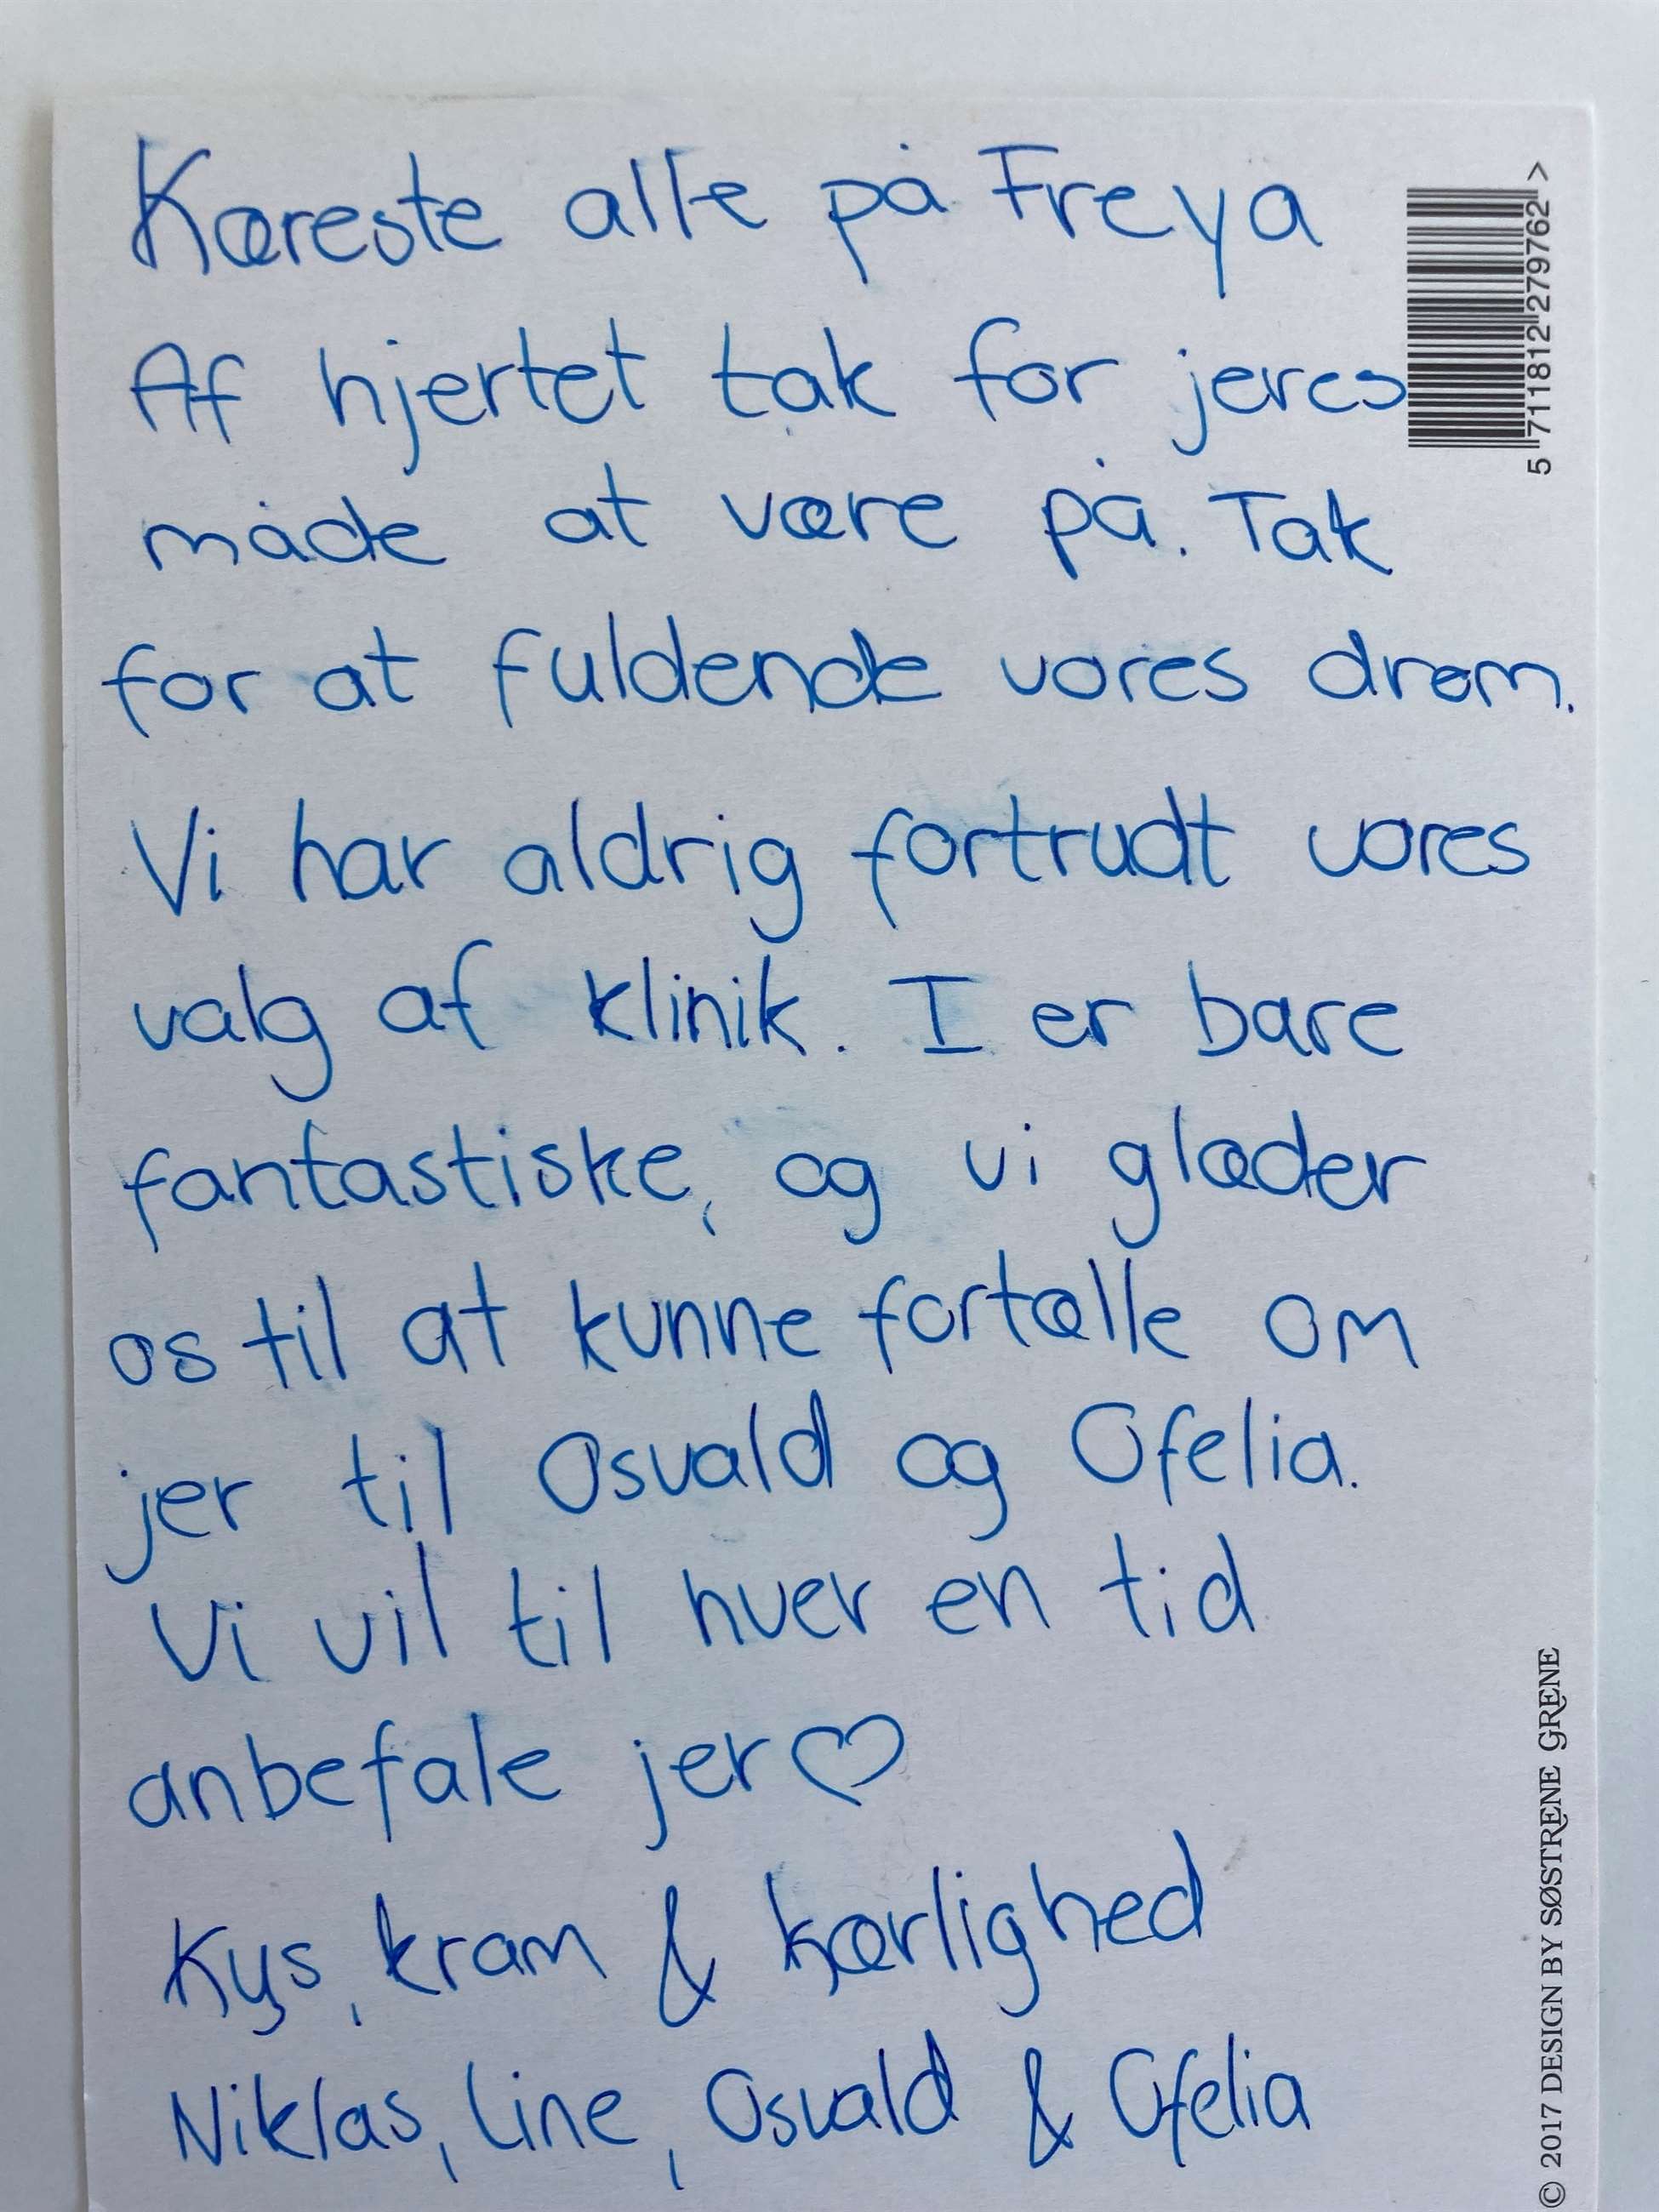 Kæreste alle på Freya
Af hjertet tak for jeres
måde at være på. Tak
for at fuldende vores drøm.
Vi har aldrig fortrudt vores
valg af klinik. I er bare
fantastiske, og vi glæder
os til at kunne fortælle om
jer til Osvald og Ofelia.
Vi vil til hver en tid
anbefale jer♡
Kys, kram & kærlighed
Niklas, Line, Osvald & Ofelia
5 711812 279762 >
© 2017 DESIGN BY SØSTRENE GRENE